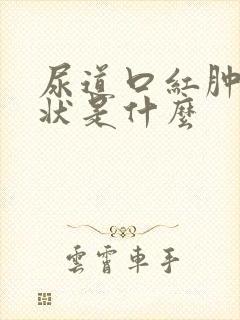 尿道口紅肿
状是什麼
雲霄車手